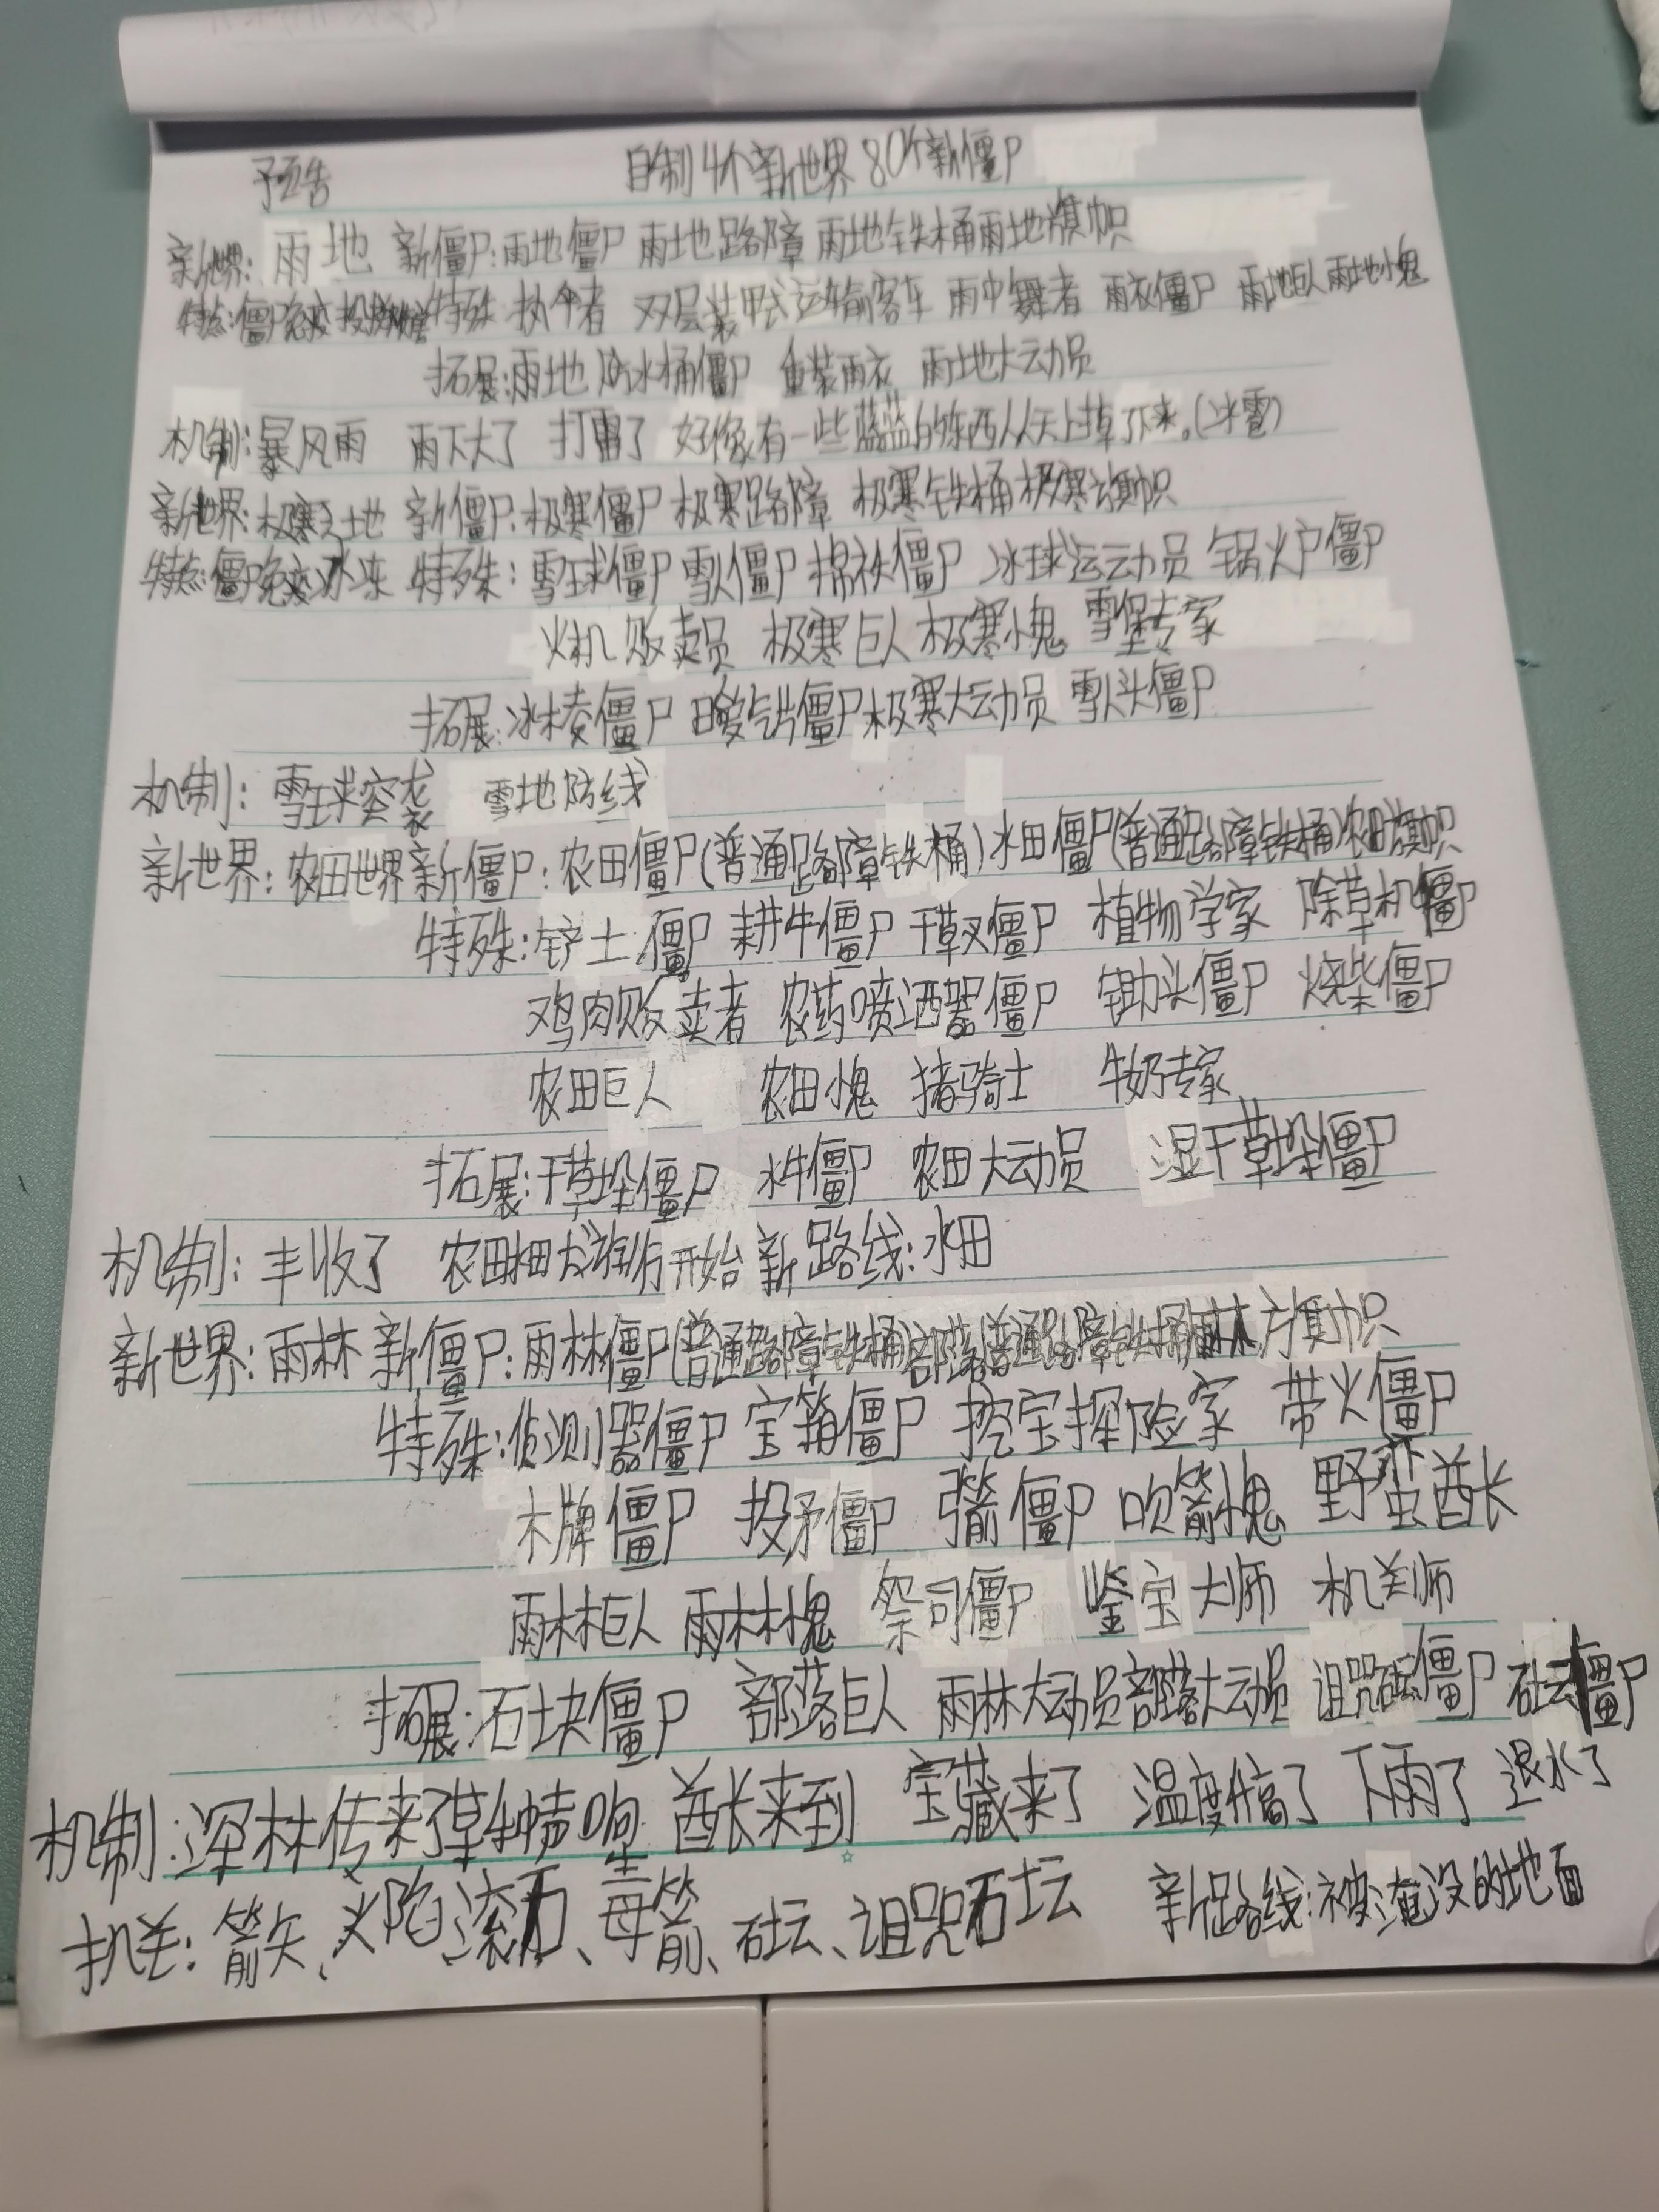 预告 自制4个新世界80个新僵尸
新世界:雨地 新僵尸:雨地僵尸 雨地路障 雨地铁桶雨地旗帜
特点:僵尸免疫投掷 特殊:执伞者 双层装甲式运输客车 雨中舞者 雨衣僵尸 雨地巨人雨地小鬼
拓展:雨地防水桶僵尸 重装雨衣 雨地大运动员
机制:暴风雨 雨下大了 打雷了 好像有一些蓝蓝的东西从天上掉下来。(冰雹)
新世界:极寒之地 新僵尸:极寒僵尸 极寒路障 极寒铁桶 极寒旗帜
特点:僵尸免疫冰冻 特殊:雪球僵尸 雪人僵尸 棉袄僵尸 冰球运动员 锅火炉僵尸
火机贩卖员 极寒巨人 极寒小鬼 雪堡专家
拓展:冰棱僵尸 暖气片僵尸 极寒大运动员 雪人头僵尸
机制:雪球突袭 雪地防线
新世界:农田世界 新僵尸:农田僵尸(普通路障铁桶)水田僵尸(普通路障铁桶)农田旗帜
特殊:铲土僵尸 耕牛僵尸 干草叉僵尸 植物学家 除草机僵尸
鸡肉贩卖者 农药喷洒器僵尸 锄头僵尸 烧柴僵尸
农田巨人 农田小鬼 猪骑士 牛奶专家
拓展:干草垛僵尸 水牛僵尸 农田大运动员 湿干草垛僵尸
机制:丰收了 农田 游行开始 新路线:水田
新世界:雨林 新僵尸:雨林僵尸(普通路障铁桶)部落(普通路障铁桶)雨林旗帜
特殊:侦测器僵尸 宝箱僵尸 挖宝探险家 带火僵尸
木牌僵尸 投矛僵尸 弓箭僵尸 吹箭小鬼 野蛮酋长
雨林巨人 雨林小鬼 祭司僵尸 鉴宝大师 机关师
拓展:石块僵尸 部落巨人 雨林大运动员 部落大运动员 诅咒石坛僵尸 石坛僵尸
机制:深林传来了草种声响 酋长来到 宝藏来了 温度升高了 下雨了 退水了
机关:箭矢、火陷、滚石、毒箭、石坛、诅咒石坛 新路线:被淹没的地面